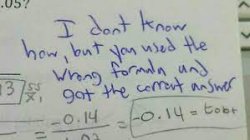 .05?
I dont know
how, but you used the
wrong formula and
got the correct answer
-0.14
-0.14 = tobt